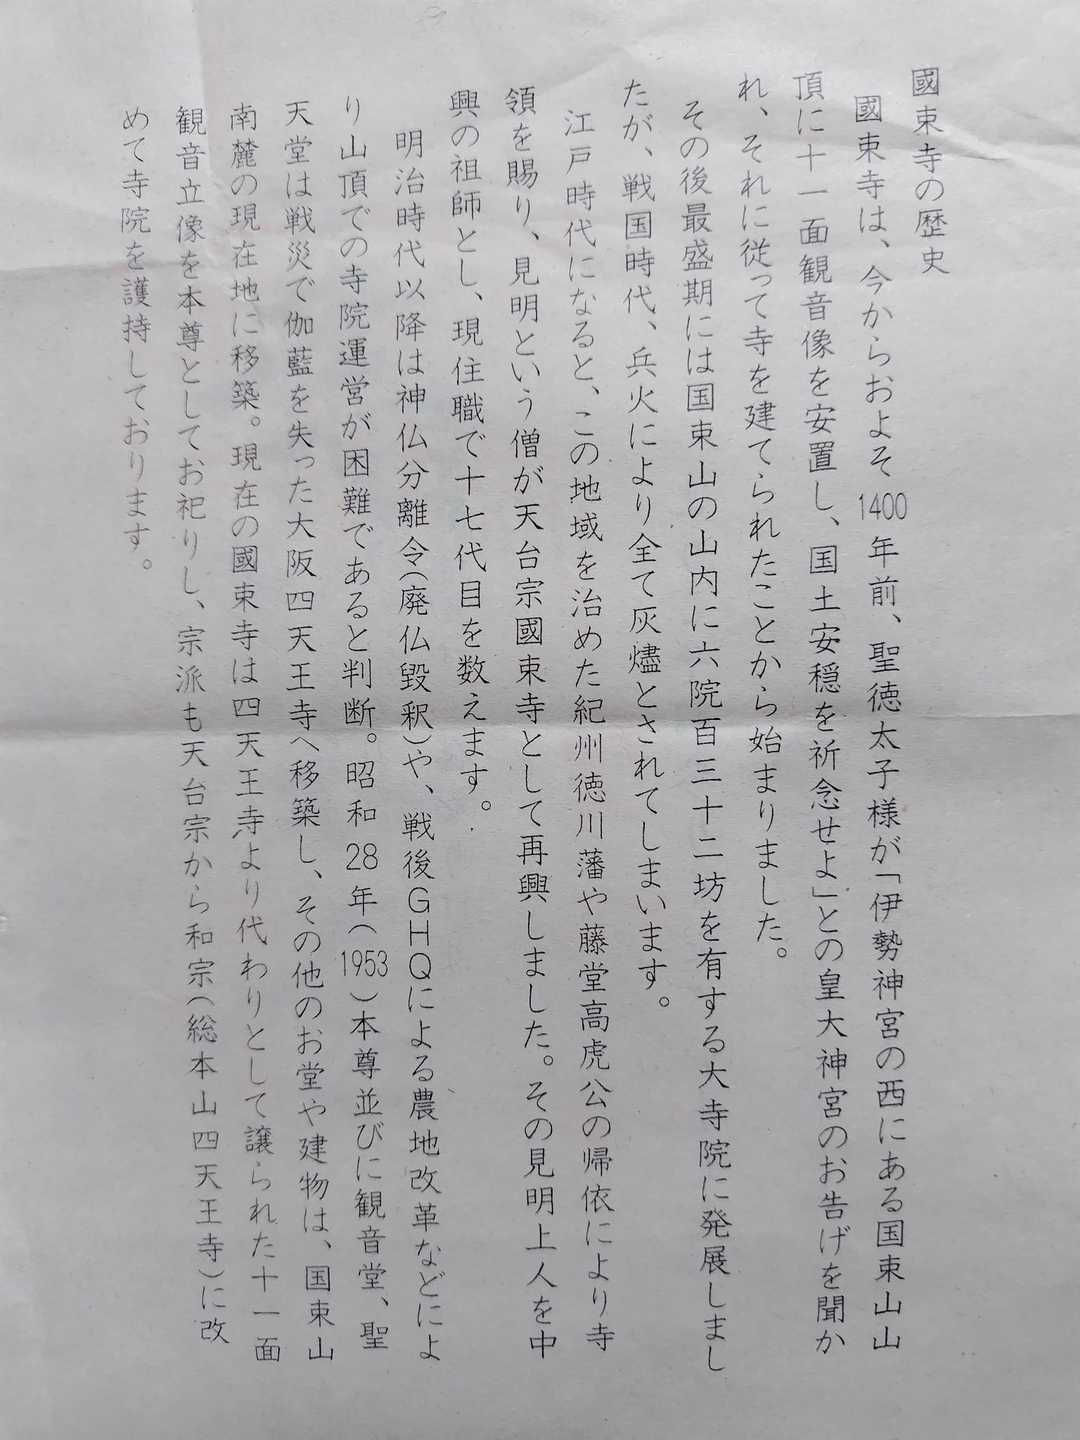 國束寺の歴史
國束寺は、今からおよそ1400年前、聖徳太子様が「伊勢神宮の西にある国束山山
頂に十一面観音像を安置し、国土安穏を祈念せよ」との皇大神宮のお告げを聞か
れ、それに従って寺を建てられたことから始まりました。
その後最盛期には国束山の山内に六院百三十二坊を有する大寺院に発展しまし
たが、戦国時代、兵火により全て灰燼とされてしまいます。
江戸時代になると、この地域を治めた紀州徳川藩や藤堂高虎公の帰依により寺
領を賜り、見明という僧が天台宗國束寺として再興しました。その見明上人を中
興の祖師とし、現住職で十七代目を数えます。
明治時代以降は神仏分離令(廃仏毀釈)や、戦後GHQによる農地改革などによ
り山頂での寺院運営が困難であると判断。昭和28年(1953)本尊並びに観音堂、聖
天堂は戦災で伽藍を失った大阪四天王寺へ移築し、その他のお堂や建物は、国束山
南麓の現在地に移築。現在の國束寺は四天王寺より代わりとして譲られた十一面
観音立像を本尊としてお祀りし、宗派も天台宗から和宗(総本山四天王寺)に改
めて寺院を護持しております。